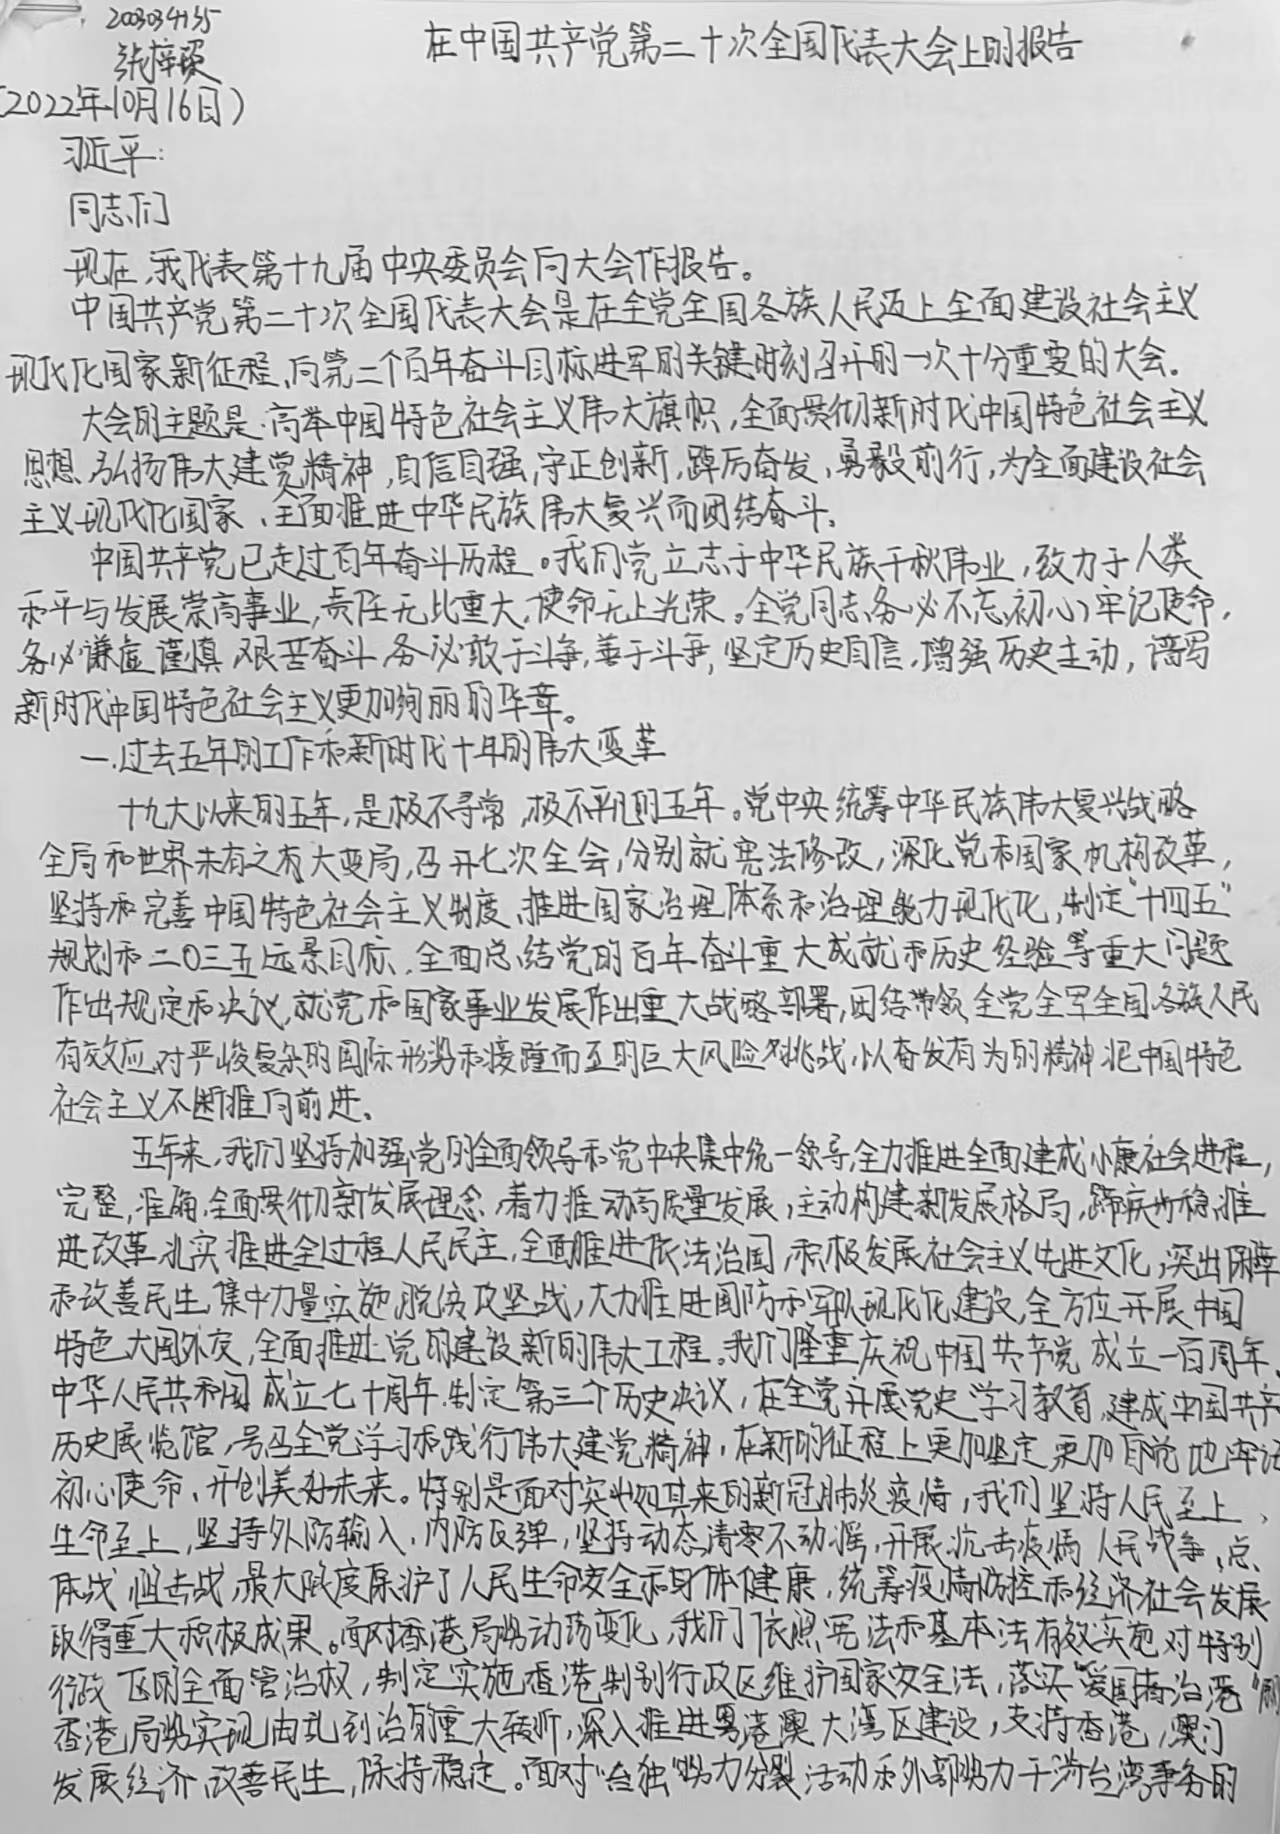 2003034135
张梓
在中国共产党第二十次全国代表大会上的报告
(2022年10月16日)
习近平:
同志们
现在,我代表第十九届中央委员会向大会作报告。
中国共产党第二十次全国代表大会是在全党全国各族人民迈上全面建设社会主义
现代化国家新征程、向第二个百年奋斗目标进军的关键时刻召开的一次十分重要的大会.
大会的主题是:高举中国特色社会主义伟大旗帜,全面贯彻新时代中国特色社会主义
思想,弘扬伟大建党精神,自信自强,守正创新,踔厉奋发,勇毅前行,为全面建设社会
主义现代化国家、全面推进中华民族伟大复兴而团结奋斗.
中国共产党已走过百年奋斗历程。我们党立志于中华民族千秋伟业,致力于人类
和平与发展崇高事业,责任无比重大,使命无上光荣。全党同志务必不忘初心,牢记使命,
务必谦虚谨慎,艰苦奋斗,务必敢于斗争,善于斗争,坚定历史自信,增强历史主动,谱写
新时代中国特色社会主义更加绚丽的华章。
一.过去五年的工作和新时代十年的伟大变革
十九大以来的五年,是极不寻常,极不平凡的五年。党中央统筹中华民族伟大复兴战略
全局和世界未有之有大变局,召开七次全会,分别就宪法修改,深化党和国家机构改革,
坚持和完善中国特色社会主义制度、推进国家治理体系和治理能力现代化,制定“十四五”
规划和二〇三五远景目标、全面总结党的百年奋斗重大成就和历史经验等重大问题
作出规定和决议,就党和国家事业发展作出重大战略部署,团结带领全党全军全国各族人民
有效应对严峻复杂的国际形势和接踵而至的巨大风险挑战,以奋发有为的精神把中国特色
社会主义不断推向前进.
五年来,我们坚持加强党的全面领导和党中央集中统一领导,全力推进全面建成小康社会进程,
完整,准确,全面贯彻新发展理念,着力推动高质量发展,主动构建新发展格局,蹄疾步稳推
进改革,扎实推进全过程人民民主,全面推进依法治国,积极发展社会主义先进文化,突出保障
和改善民生,集中力量实施脱贫攻坚战,大力推进国防和军队现代化建设,全方位开展中国
特色大国外交,全面推进党的建设新的伟大工程。我们隆重庆祝中国共产党成立一百周年、
中华人民共和国成立七十周年,制定第三个历史决议,在全党开展党史学习教育,建成中国共产
历史展览馆,号召全党学习和践行伟大建党精神,在新的征程上更加坚定更加自觉地牢记
初心使命、开创美好未来。特别是面对突如其来的新冠肺炎疫情,我们坚持人民至上、
生命至上,坚持外防输入、内防反弹,坚持动态清零不动摇,开展抗击疫情人民战争、总
体战、阻击战,最大限度保护了人民生命安全和身体健康,统筹疫情防控和经济社会发展
取得重大积极成果。面对香港局势动荡变化,我们依照宪法和基本法有效实施对特别
行政区的全面管治权,制定实施香港制别行政区维护国家安全法,落实“爱国者治港”
香港局势实现由乱到治的重大转折,深入推进粤港澳大湾区建设,支持香港,澳门
发展经济,改善民生,保持稳定。面对“台独”势力分裂活动和外部势力干涉台湾事务的